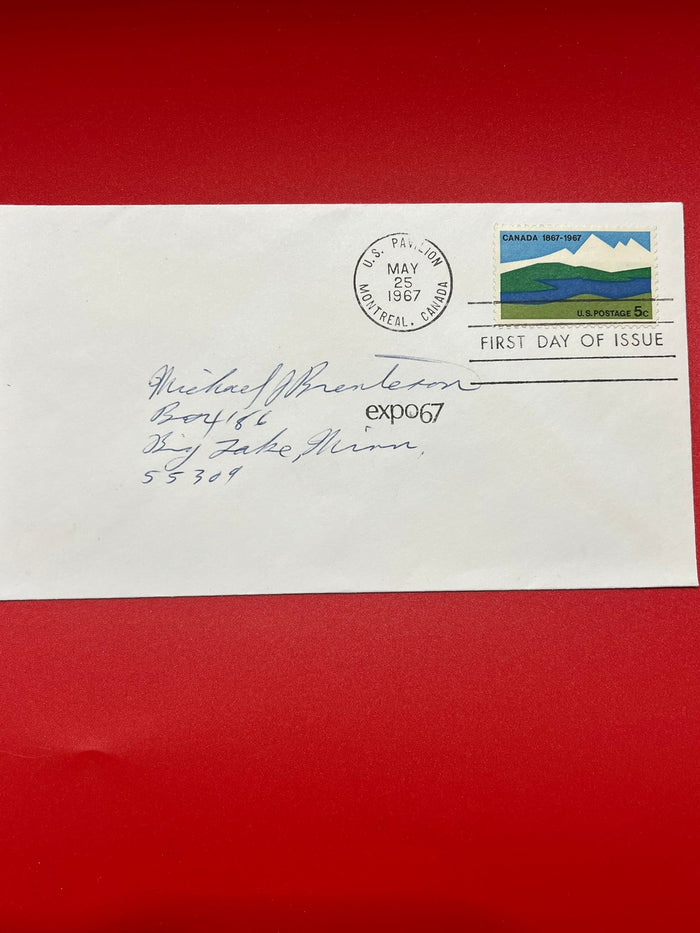 U.S. PAVILION
MAY
25
1967
MONTREAL, CANADA
CANADA 1867-1967
U.S. POSTAGE 5c
FIRST DAY OF ISSUE
Michael J
Box 186
expo67
Big Lake, Minn,
55309